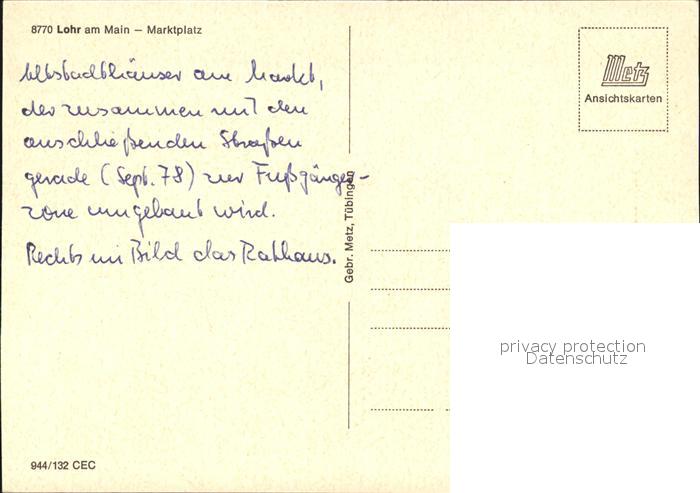 8770 Lohr am Main – Marktplatz
Altstadthäuser am Markt,
der zusammen mit den
anschließenden Straßen
gerade (Sept. 78) zur Fußgänger-
zone umgebaut wird.
Rechts im Bild das Rathaus.
Metz
Ansichtskarten
Gebr. Metz, Tübingen
privacy protection
Datenschutz
944/132 CEC